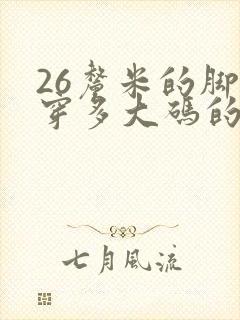 26釐米的脚
穿多大碼的
七月風流